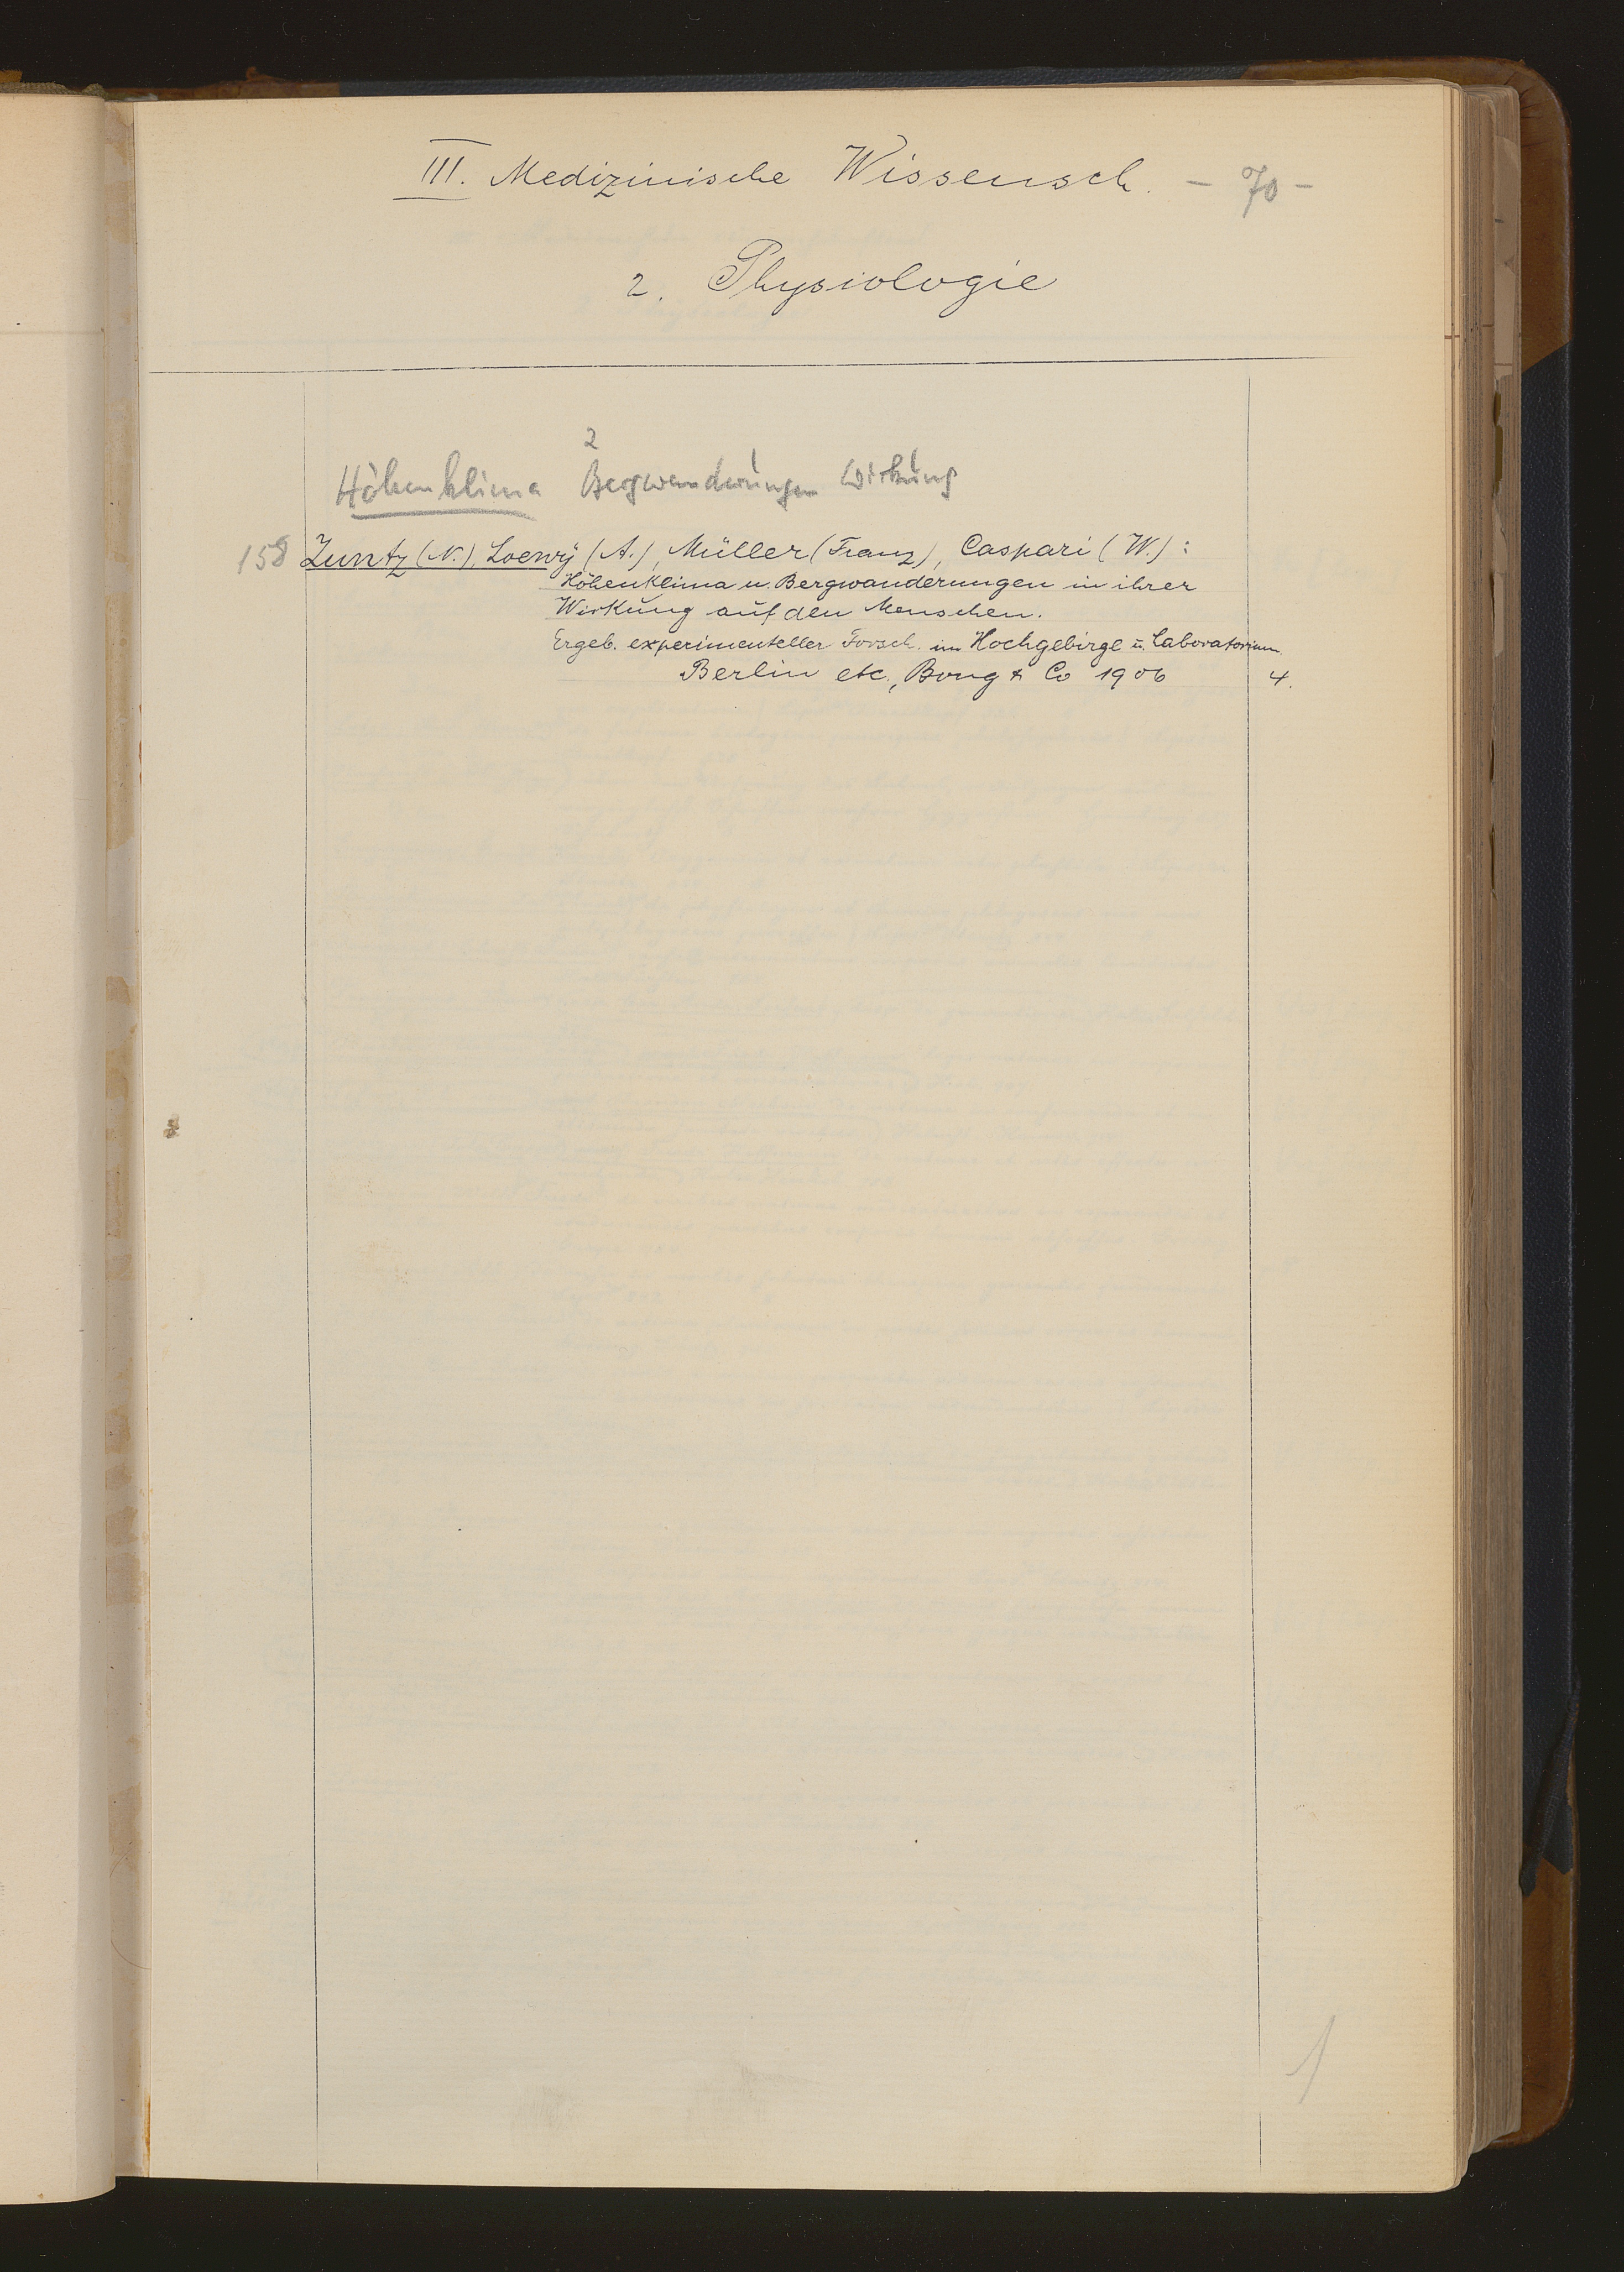 III. Medizinische Wissensch. - 70 -
2. Physiologie
2 1
Höhenklima Bergwanderungen Wirkung
158 Zuntz (N.), Loewy (A.), Müller (Franz), Caspari (W.):
Höhenklima u. Bergwanderungen in ihrer
Wirkung auf den Menschen.
Ergeb. experimenteller Forsch. im Hochgebirge u. Laboratorium.
Berlin etc., Bong & Co 1906 4.
1